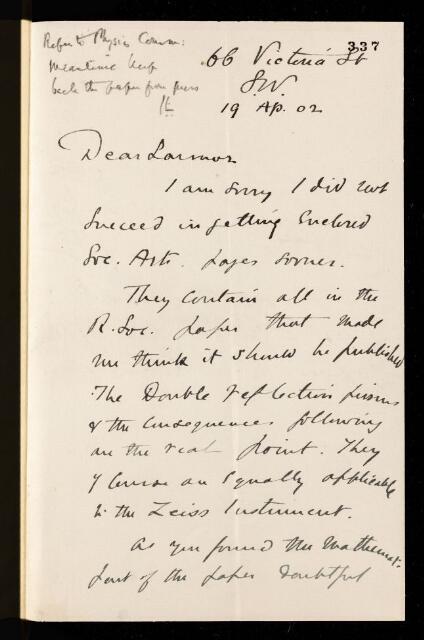 Refer to Physics Comm:
Meantime keep
back the paper from press
337
66 Victoria St
S.W.
19 Ap. 02
Dear Larmor
I am sorry I did not
succeed in getting enclosed
Soc. Arts. pages sooner.
They contain all in the
R. Soc. paper that made
me think it should be published
The Double reflection prisms
& the consequences following
are the real point. They
of course are equally applicable
to the Zeiss Instrument.
As you found the Mathemat.
part of the paper doubtful